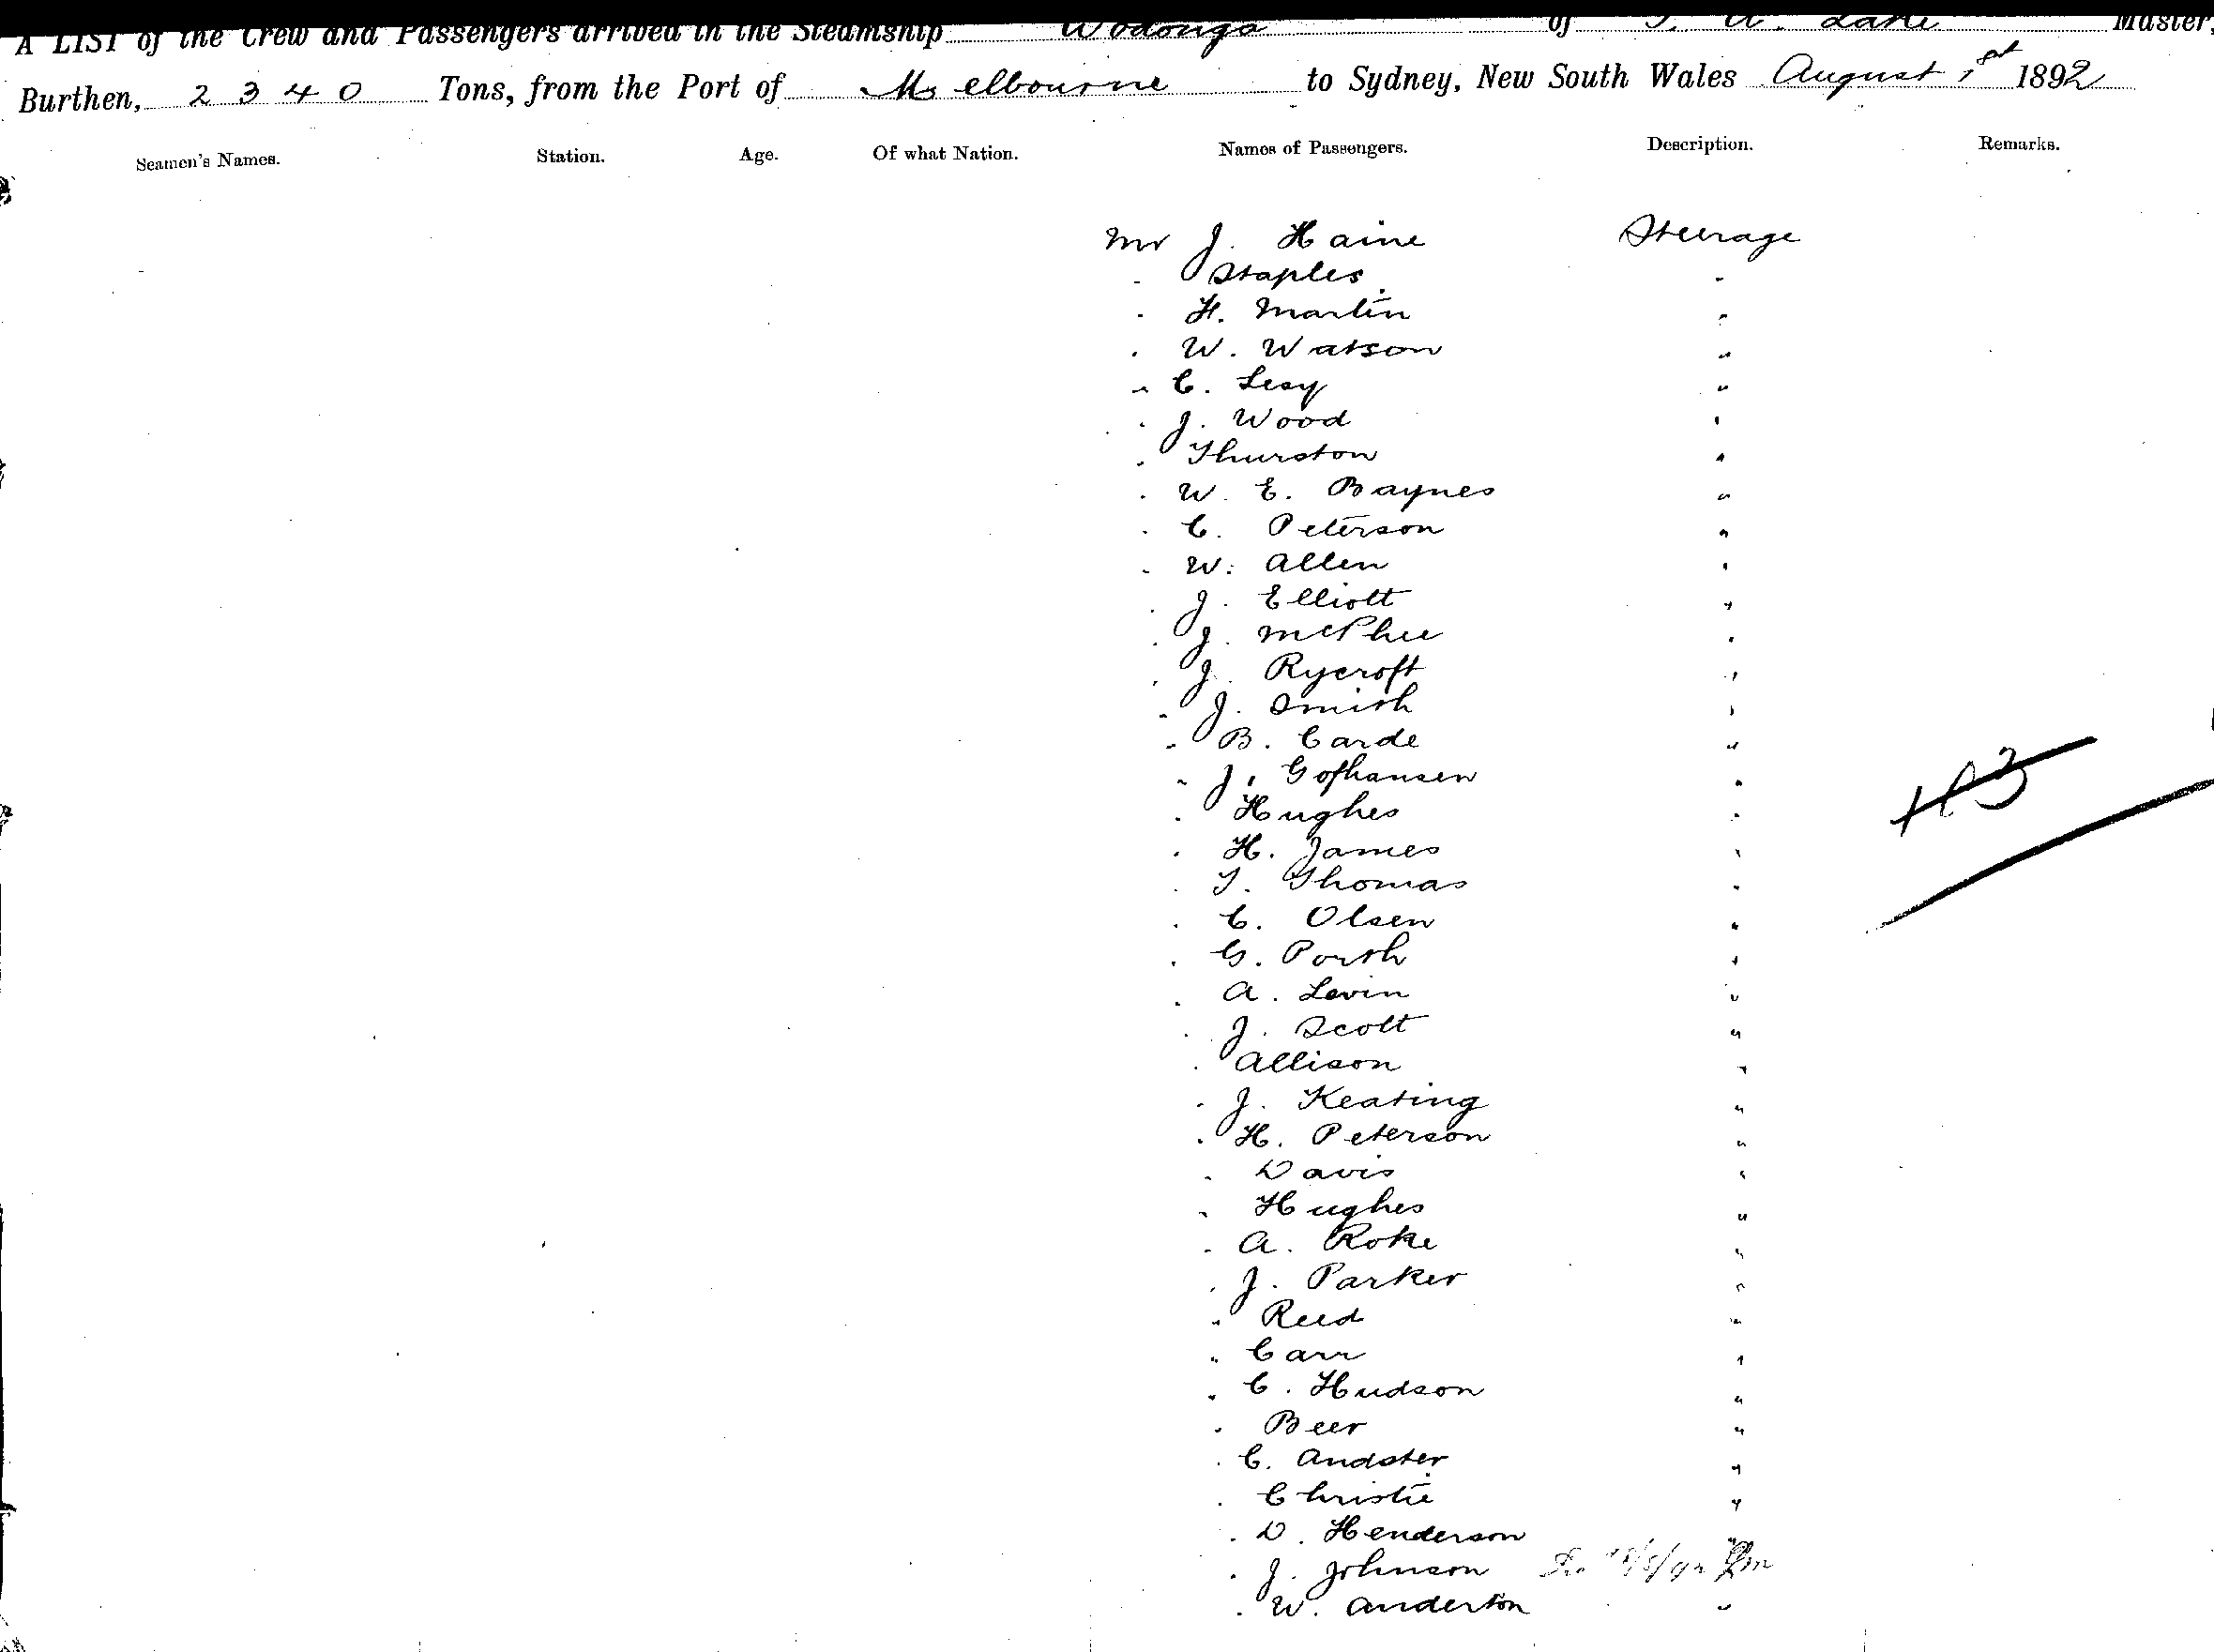 A LIST of the Crew and Passengers arrived in the Steamship Wodonga of Master,
Burthen, 2340 Tons, from the Port of Melbourne to Sydney, New South Wales August 1st 1892
Seamen's Names. Station. Age. Of what Nation. Names of Passengers. Description. Remarks.
Mr J. Haine Steerage
- Staples "
- H. Martin "
- W. Watson "
- C. Lesy "
- J. Wood "
- Thurston "
- W. E. Baynes "
- C. Peterson "
- W. Allen "
- J. Elliott "
- J. McPhee "
- J. Rycroft "
- J. Smith "
- B. Carde "
- J. Gofhansen "
- Hughes "
- H. James "
- T. Thomas "
- C. Olsen "
- G. Porth "
- A. Levin "
- J. Scott "
- Allison "
- J. Keating "
- H. Peterson "
- Davis "
- Hughes "
- A. Roke "
- J. Parker "
- Reed "
- Carr "
- C. Hudson "
- Beer "
- C. Andster "
- Christie "
- D. Henderson "
- J. Johnson
- W. Anderton "